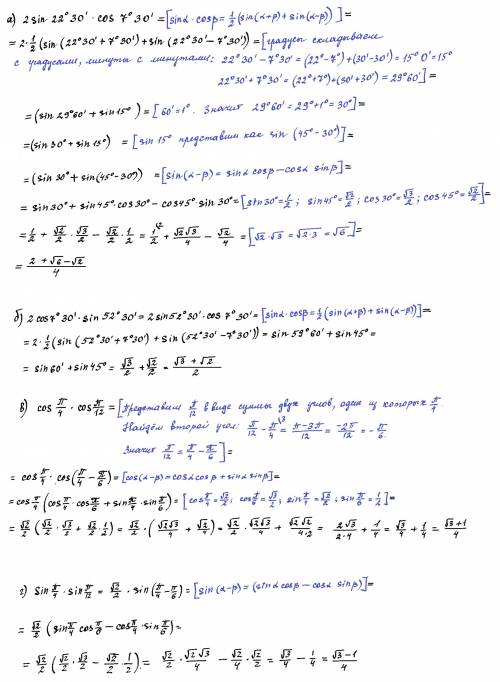 а) 2 sin 22°30' · cos 7°30' = [sinα · cosβ = 1/2 (sin(α+β) + sin(α-β))] =
= 2 · 1/2 (sin (22°30' + 7°30') + sin (22°30' - 7°30')) = [градусы складываем
с градусами, минуты с минутами: 22°30' - 7°30' = (22°-7°) + (30'-30') = 15°0' = 15°
22°30' + 7°30' = (22°+7°) + (30'+30') = 29°60'] =
= (sin 29°60' + sin 15°) = [60' = 1°. Значит 29°60' = 29° + 1° = 30°] =
= (sin 30° + sin 15°) = [sin 15° представим как sin (45° - 30°)] =
= (sin 30° + sin(45° - 30°)) = [sin(α-β) = sinα cosβ - cosα sinβ] =
= sin 30° + sin 45° · cos 30° - cos 45° · sin 30° = [sin 30° = 1/2; sin 45° = √2/2; cos 30° = √3/2; cos 45° = √2/2] =
= 1/2 + √2/2 · √3/2 - √2/2 · 1/2 = 1/2 + √2√3/4 - √2/4 = [√2 · √3 = √2·3 = √6] =
= (2 + √6 - √2)/4
б) 2 cos 7°30' · sin 52°30' = 2 sin 52°30' · cos 7°30' = [sinα · cosβ = 1/2 (sin(α+β) + sin(α-β))] =
= 2 · 1/2 (sin (52°30' + 7°30') + sin (52°30' - 7°30')) = sin 59°60' + sin 45° =
= sin 60° + sin 45° = √3/2 + √2/2 = (√3 + √2)/2
в) cos π/4 · cos π/12 = [Представим π/12 в виде суммы двух углов, один из которых π/4.
Найдём второй угол: π/12 - π/4 = (π-3π)/12 = -2π/12 = -π/6.
Значит π/12 = π/4 - π/6] =
= cos π/4 · cos(π/4 - π/6) = [cos(α-β) = cosα cosβ + sinα sinβ] =
= cos π/4 (cos π/4 · cos π/6 + sin π/4 · sin π/6) = [cos π/4 = √2/2; cos π/6 = √3/2; sin π/4 = √2/2; sin π/6 = 1/2] =
= √2/2 (√2/2 · √3/2 + √2/2 · 1/2) = √2/2 · (√2√3/4 + √2/4) = √2/2 · √2√3/4 + √2√2/4·2 = 2√3/2·4 + 1/4 = √3/4 + 1/4 = (√3+1)/4
г) sin π/4 · sin π/12 = √2/2 · sin (π/4 - π/6) = [sin (α-β) = (sinα cosβ - cosα sinβ)] =
= √2/2 (sin π/4 cos π/6 - cos π/4 · sin π/6) =
= √2/2 (√2/2 · √3/2 - √2/2 · 1/2) = √2/2 · √2√3/4 - √2/4 · √2/2 = √3/4 - 1/4 = (√3-1)/4